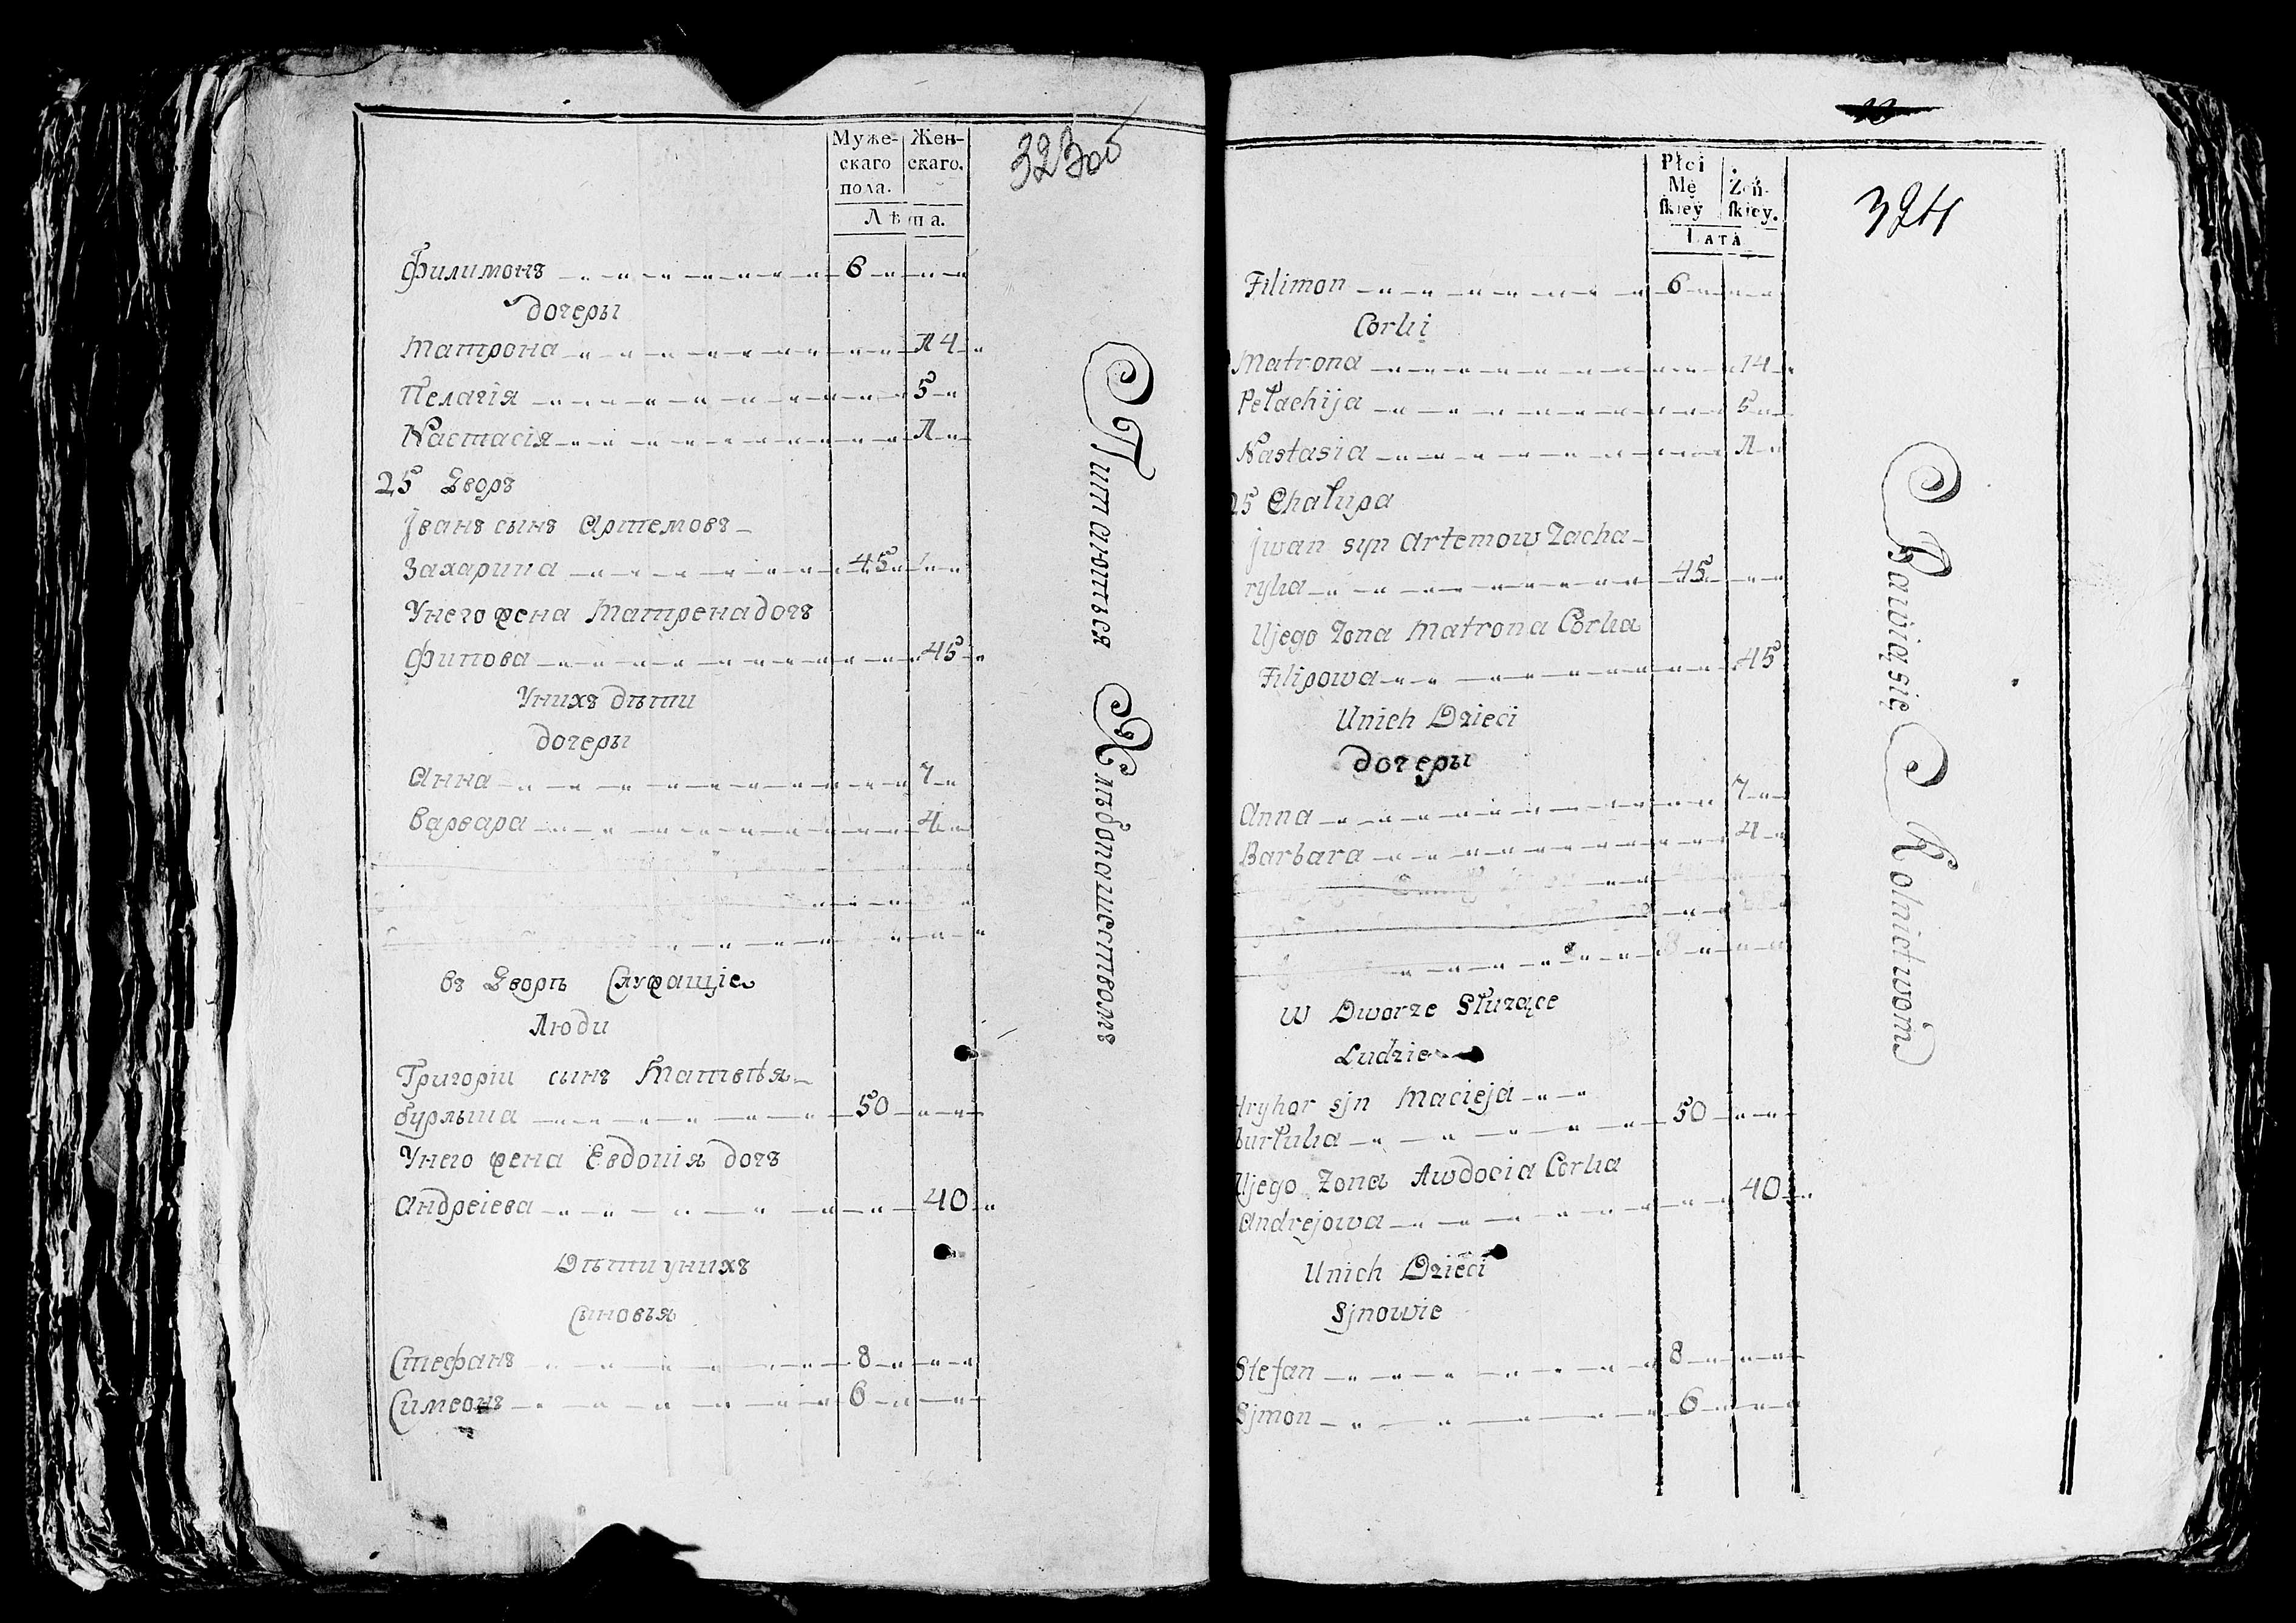 Муже-
скаго
пола.
Жен-
скаго.
Лѣта.
323об
Филимонъ 6
дочеры
Матрона 14
Пелагія 5
Настасія 1
25 Дворъ
Іванъ сынъ Артемовъ
Захарика 45
Унего жена Матрена дочъ
Фипова 45
Унихъ дѣти
дочеры
Анна 7
Варвара 4
въ Дворѣ Служащіе
Люди
Григоріи сынъ Матвѣя
бурлыка 50
Унего жена Евдокія дочъ
Андреіева 40
Дѣти унихъ
Сыновья
Стефанъ 8
Симеонъ 6
Питаються Хлѣбопашествомъ
Płci
Mę
skiey
Żeń-
skiey.
Lata
324
Filimon 6
Corki
Matrona 14
Pełachija 5
Nastasia 1
25 Chałupa
Jwan syn Artemow Zacha-
ryka 45
Ujego Zona Matrona Corka
Filipowa 45
Unich Dzieci
дочеры
Anna 7
Barbara 4
W Dworze Służące
Ludzie
Hryhor sjn Macieja
burłuka 50
Ujego Zona Awdocia Corka
Andrejowa 40
Unich Dzieci
Sjnowie
Stefan 8
Sjmon 6
Bawią się Rolnictwom